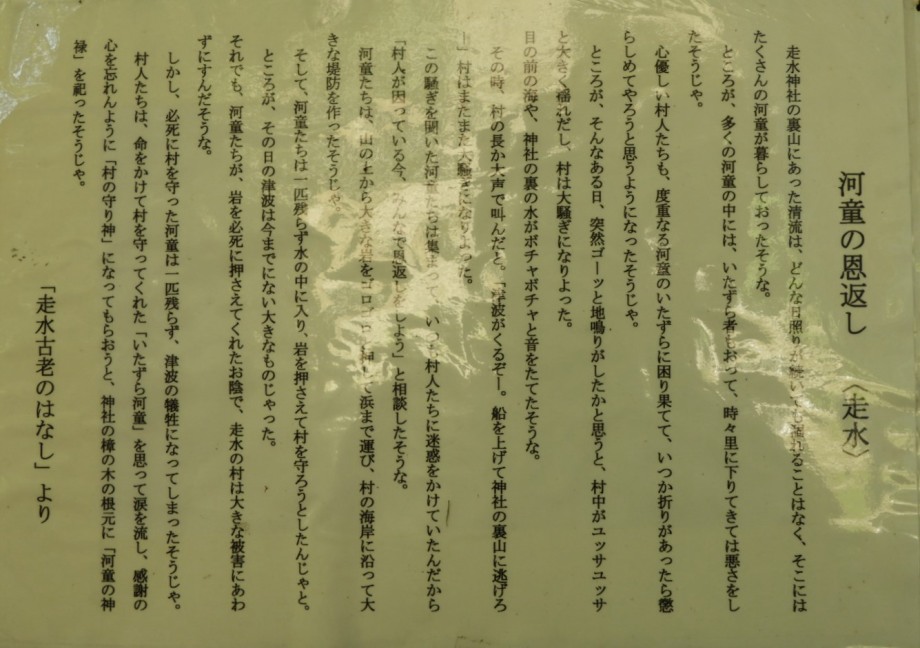 河童の恩返し 〈走水〉
走水神社の裏山にあった清流は、どんな日照りが続いても涸れることはなく、そこには
たくさんの河童が暮らしておったそうな。
ところが、多くの河童の中には、いたずら者もおって、時々里に下りてきては悪さをし
たそうじゃ。
心優しい村人たちも、度重なる河童のいたずらに困り果てて、いつか折りがあったら懲
らしめてやろうと思うようになったそうじゃ。
ところが、そんなある日、突然ゴーッと地鳴りがしたかと思うと、村中がユッサユッサ
と大きく揺れだし、村は大騒ぎになりよった。
目の前の海や、神社の裏の水がボチャボチャと音をたてたそうな。
その時、村の長が大声で叫んだと。「津波がくるぞー。船を上げて神社の裏山に逃げろ
ー」村はまたまた大騒ぎになりよった。
この騒ぎを聞いた河童たちは集まって、いつも村人たちに迷惑をかけていたんだから
「村人が困っている今、みんなで恩返しをしよう」と相談したそうな。
河童たちは、山の上から大きな岩をゴロゴロ押して浜まで運び、村の海岸に沿って大
きな堤防を作ったそうじゃ。
そして、河童たちは一匹残らず水の中に入り、岩を押さえて村を守ろうとしたんじゃと。
ところが、その日の津波は今までにない大きなものじゃった。
それでも、河童たちが、岩を必死に押さえてくれたお陰で、走水の村は大きな被害にあわ
ずにすんだそうな。
しかし、必死に村を守った河童は一匹残らず、津波の犠牲になってしまったそうじゃ。
村人たちは、命をかけて村を守ってくれた「いたずら河童」を思って涙を流し、感謝の
心を忘れんように「村の守り神」になってもらおうと、神社の樟の木の根元に「河童の神
禄」を祀ったそうじゃ。
「走水古老のはなし」より